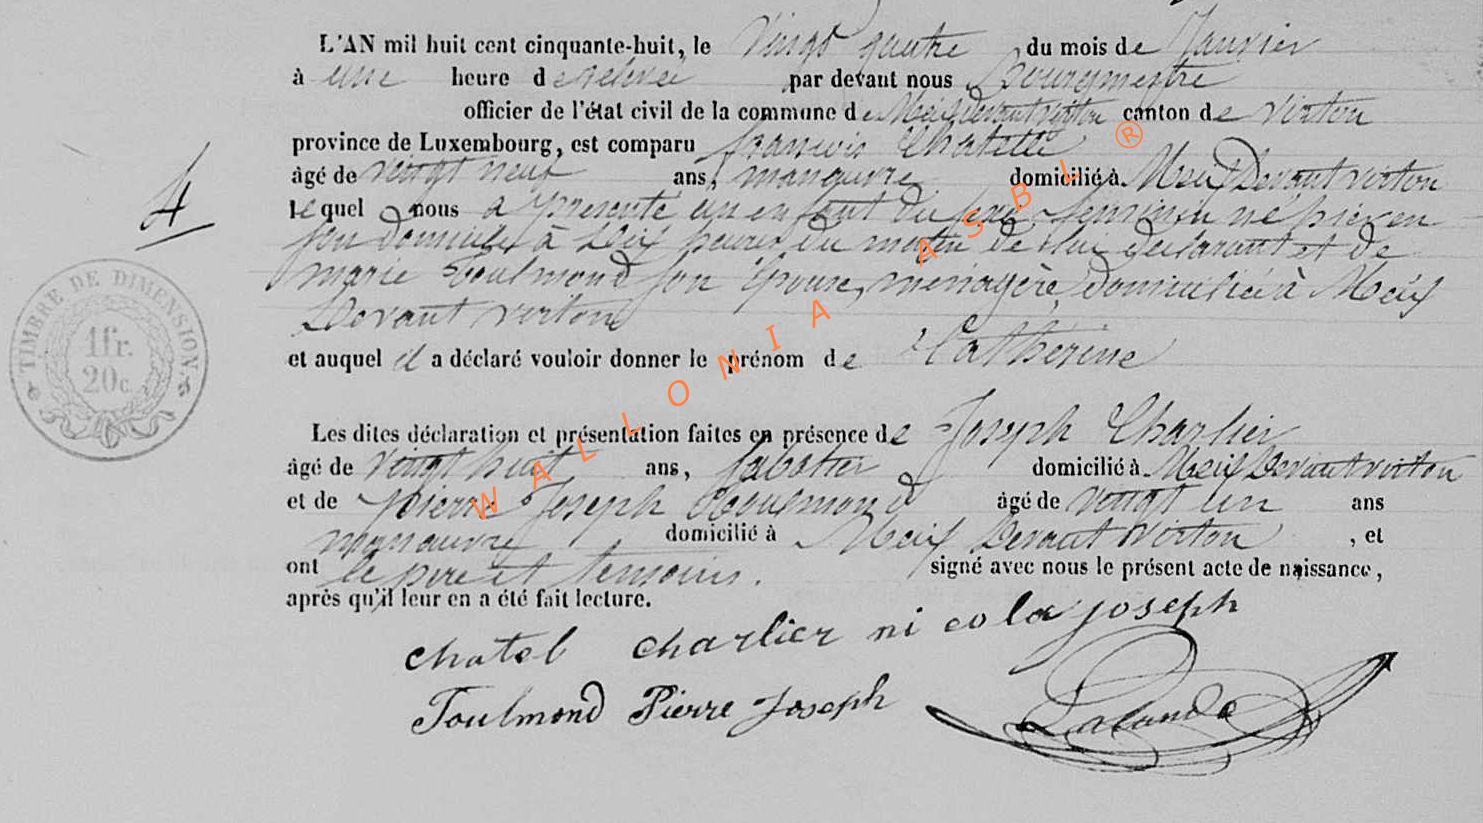 L'AN mil huit cent cinquante-huit, le Vingt quatre du mois de Janvier
à une heure de relevée par devant nous Bourgmestre
officier de l'état civil de la commune de Meix Devant virton canton de virton
province de Luxembourg, est comparu francois Chatelle
âgé de vingt neuf ans, manœuvre domicilié à Meix Devant virton
lequel nous a présenté un enfant du sexe feminin né hier en
son domicile à dix heures du matin de lui déclarant et de
marie Toulmond son Epouse, ménagère, domiciliée à Meix
Devant virton
et auquel il a déclaré vouloir donner le prénom de Catherine
Les dites déclaration et présentation faites en présence de Joseph Charlier
âgé de vingt huit ans, sabotier domicilié à Meix Devant virton
et de pierre Joseph Toulmond âgé de vingt un ans
manœuvre domicilié à Meix Devant Virton, et
ont le pere et temoins. signé avec nous le présent acte de naissance,
après qu'il leur en a été fait lecture.
chatel charlier nicolas joseph
Toulmond Pierre Joseph
4
TIMBRE DE DIMENSION
1fr.
20c.
WALLONIA ASBL ®